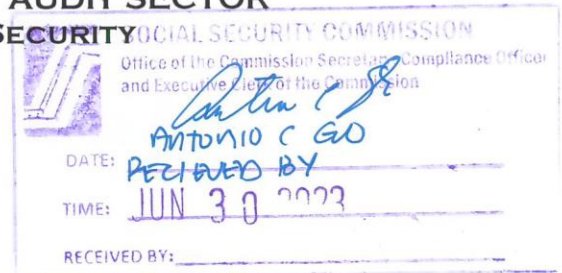 AUDIT SECTOR
SECURITY
SOCIAL SECURITY COMMISSION
Office of the Commission Secretary Compliance Officer
and Executive Clerk of the Commission
ANTONIO C GO
DATE: RECIEVED BY
TIME: JUN 30 2023
RECEIVED BY: